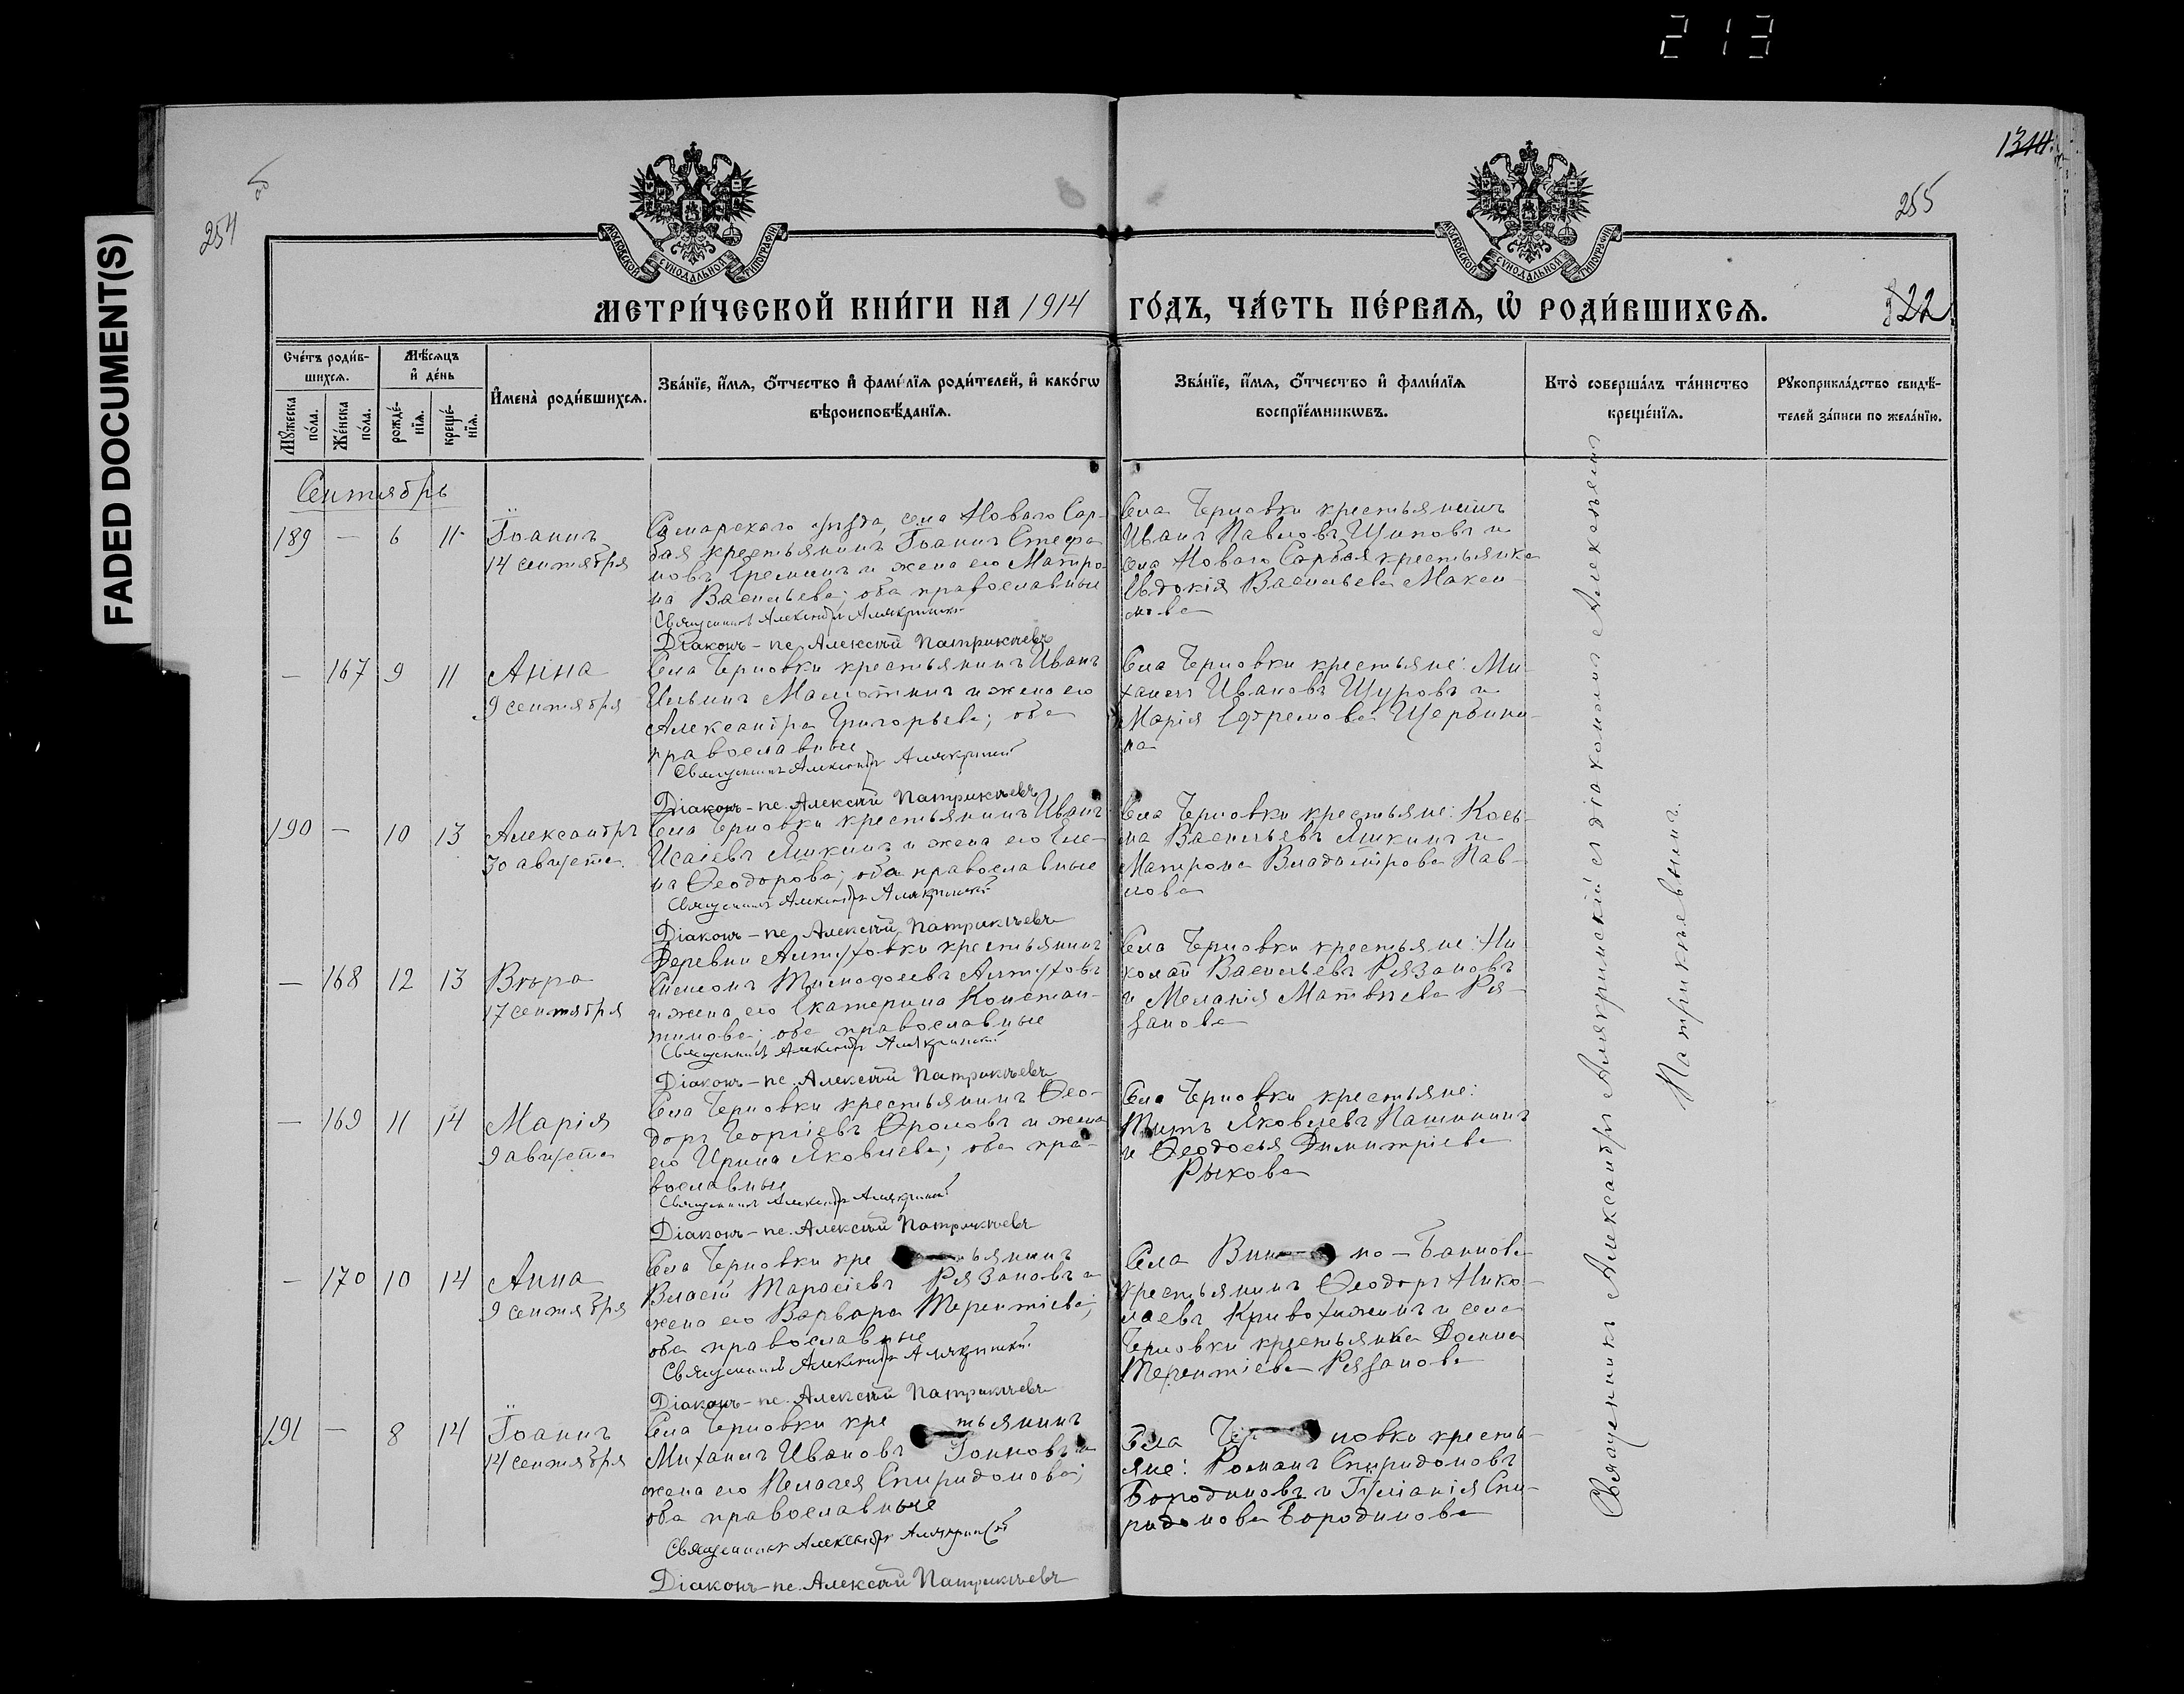 213
FADED DOCUMENT(S)
254
255
1314.
МОСКОВСКОЙ СУНОДАЛЬНОЙ ТИПОГРАФІИ
МОСКОВСКОЙ СУНОДАЛЬНОЙ ТИПОГРАФІИ
МЕТРИ́ЧЕСКОЙ КНИ́ГИ НА 1914 ГО́ДЪ, ЧА́СТЬ ПЕ́РВАѦ, Ѡ҆ РОДИ́ВШИХСѦ.
322
Сче́тъ роди́в-
шихсѧ.
Мѣ́сѧцъ
и҆ де́нь
И҆мена̀ роди́вшихсѧ.
Зва́нїе, и҆́мѧ, ѻ҆́тчество и҆ фами́лїѧ роди́телей, и҆ како́гѡ
вѣроисповѣ́данїѧ.
Зва́нїе, и҆́мѧ, ѻ҆́тчество и҆ фами́лїѧ
воспрїе́мникѡвъ.
Кто̀ соверша́лъ та́инство
креще́нїѧ.
Рꙋкоприкла́дство свидѣ́-
телей за́писи по жела́нїю.
Мꙋ́жеска
по́ла.
Же́нска
по́ла.
рожде́-
нїѧ.
креще́-
нїѧ.
Сентябрь
189 — 6 11 Іоаннъ
14 сентября
Самарскаго уѣзда, села Новаго Сар-
бая крестьянинъ Іоаннъ Стефа-
новъ Ереминъ и жена его Матро-
на Васильева; оба православные
Священникъ Александръ Алякринскій
Діаконъ-пс. Алексѣй Патрикѣевъ
Села Черновки крестьянинъ
Иванъ Павловъ Щиповъ и
села Новаго Сарбая крестьянка
Евдокія Васильева Макси-
мова
— 167 9 11 Анна
9 сентября
Села Черновки крестьянинъ Иванъ
Ильинъ и жена его
Александра Григорьева; оба
православные
Священникъ Александръ Алякринскій
Діаконъ-пс. Алексѣй Патрикѣевъ
Села Черновки крестьяне: Ми-
хаилъ Ивановъ Щуровъ и
Марія Ефремова Щербини-
на
190 — 10 13 Александръ
30 августа
Села Черновки крестьянинъ Иванъ
Исаіевъ Ликинъ и жена его Еле-
на Ѳеодорова; оба православные
Священникъ Александръ Алякринскій
Діаконъ-пс. Алексѣй Патрикѣевъ
Села Черновки крестьяне: Кось-
ма Васильевъ Ликинъ и
Матрона Владимірова Пав-
лова
— 168 12 13 Вѣра
17 сентября
Деревни Алтуховки крестьянинъ
Симеонъ Тимофеевъ Алтуховъ
и жена его Екатерина Констан-
тинова; оба православные
Священникъ Александръ Алякринскій
Діаконъ-пс. Алексѣй Патрикѣевъ
Села Черновки крестьяне: Ни-
колай Васильевъ Рязановъ
и Меланія Матвѣева Ря-
занова
— 169 11 14 Марія
9 августа
Села Черновки крестьянинъ Ѳео-
доръ Георгіевъ Фроловъ и жена
его Ирина Яковлева; оба пра-
вославные
Священникъ Александръ Алякринскій
Діаконъ-пс. Алексѣй Патрикѣевъ
Села Черновки крестьяне:
Титъ Яковлевъ Пашининъ
и Ѳеодосья Димитріева
Рыкова
— 170 10 14 Анна
9 сентября
Села Черновки кре—стьянинъ
Власій Тарасіевъ Рязановъ и
жена его Варвара Терентіева;
оба православные
Священникъ Александръ Алякринскій
Діаконъ-пс. Алексѣй Патрикѣевъ
Села но-Баннова
крестьянинъ Ѳеодоръ Нико-
лаевъ Кривохижинъ и села
Черновки крестьянка Домна
Терентіева Рязанова
191 — 8 14 Іоаннъ
14 сентября
Села Черновки кре тьянинъ
Михаилъ Ивановъ и
жена его Пелагея Спиридонова;
оба православные
Священникъ Александръ Алякринскій
Діаконъ-пс. Алексѣй Патрикѣевъ
Села Чер—новки кресть-
яне: Романъ Спиридоновъ
Бородиновъ и Спи-
ридонова Бородинова
Священникъ Александръ Алякринскій съ діакономъ Алексѣемъ
Патрикѣевымъ.